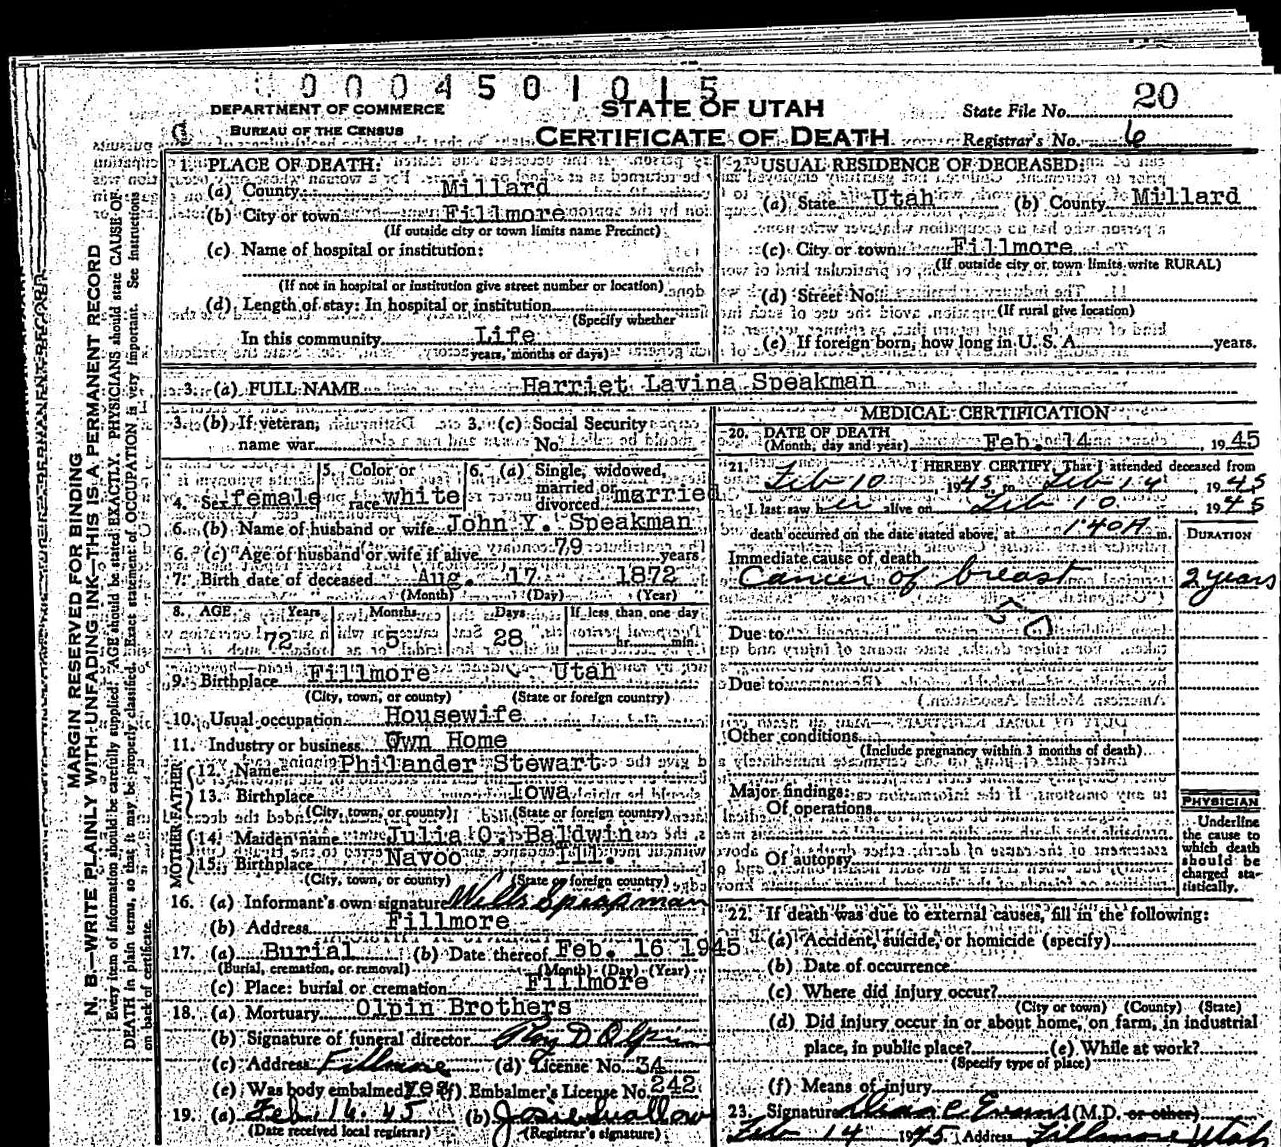 0004501015
DEPARTMENT OF COMMERCE
BUREAU OF THE CENSUS
STATE OF UTAH
CERTIFICATE OF DEATH
State File No. 20
Registrar's No. 6
MARGIN RESERVED FOR BINDING
N. B.—WRITE PLAINLY WITH UNFADING INK—THIS IS A PERMANENT RECORD
Every item of information should be carefully supplied. AGE should be stated EXACTLY. PHYSICIANS should state CAUSE OF
DEATH in plain terms, so that it may be properly classified. Exact statement of OCCUPATION is very important. See instructions
on back of certificate.
1. PLACE OF DEATH:
(a) County Millard
(b) City or town Fillmore
(If outside city or town limits name Precinct)
(c) Name of hospital or institution:
(If not in hospital or institution give street number or location)
(d) Length of stay: In hospital or institution
(Specify whether
In this community Life
years, months or days)
2. USUAL RESIDENCE OF DECEASED:
(a) State Utah (b) County Millard
(c) City or town Fillmore
(If outside city or town limits write RURAL)
(d) Street No.
(If rural give location)
(e) If foreign born, how long in U. S. A. years.
3. (a) FULL NAME Harriet Lavina Speakman
3. (b) If veteran, 3. (c) Social Security
name war No.
4. Sex female 5. Color or race white 6. (a) Single, widowed, married or divorced married
6. (b) Name of husband or wife John Y. Speakman
6. (c) Age of husband or wife if alive 79 years
7. Birth date of deceased Aug. 17 1872
(Month) (Day) (Year)
8. AGE Years Months Days If less than one day
72 5 28 hr. min.
9. Birthplace Fillmore Utah
(City, town, or county) (State or foreign country)
10. Usual occupation Housewife
11. Industry or business Own Home
FATHER
12. Name Philander Stewart
13. Birthplace Iowa
(City, town, or county) (State or foreign country)
MOTHER
14. Maiden name Julia O. Baldwin
15. Birthplace Navoo Ill.
(City, town, or county) (State or foreign country)
16. (a) Informant's own signature Wills Speakman
(b) Address Fillmore
17. (a) Burial (b) Date thereof Feb. 16 1945
(Burial, cremation, or removal) (Month) (Day) (Year)
(c) Place: burial or cremation Fillmore
18. (a) Mortuary Olpin Brothers
(b) Signature of funeral director Roy D Olpin
(c) Address Fillmore (d) License No. 34
(e) Was body embalmed yes (f) Embalmer's License No. 242
19. (a) Feb. 16. 45 (b) Josie Swallow
(Date received local registrar) (Registrar's signature)
MEDICAL CERTIFICATION
20. DATE OF DEATH
(Month, day and year) Feb. 14 1945
21. I HEREBY CERTIFY, That I attended deceased from
Feb 10, 1945 to Feb 14, 1945
I last saw her alive on Feb 10, 1945
death occurred on the date stated above, at 1:40 A m.
DURATION
Immediate cause of death
Cancer of breast 2 years
50
Due to
Due to
Other conditions
(Include pregnancy within 3 months of death)
Major findings:
Of operations
Of autopsy
PHYSICIAN
Underline
the cause to
which death
should be
charged sta-
tistically.
22. If death was due to external causes, fill in the following:
(a) Accident, suicide, or homicide (specify)
(b) Date of occurrence
(c) Where did injury occur?
(City or town) (County) (State)
(d) Did injury occur in or about home, on farm, in industrial
place, in public place? (e) While at work?
(Specify type of place)
(f) Means of injury
23. Signature Evans (M.D. or other)
Feb 14 1945 Address Fillmore Utah